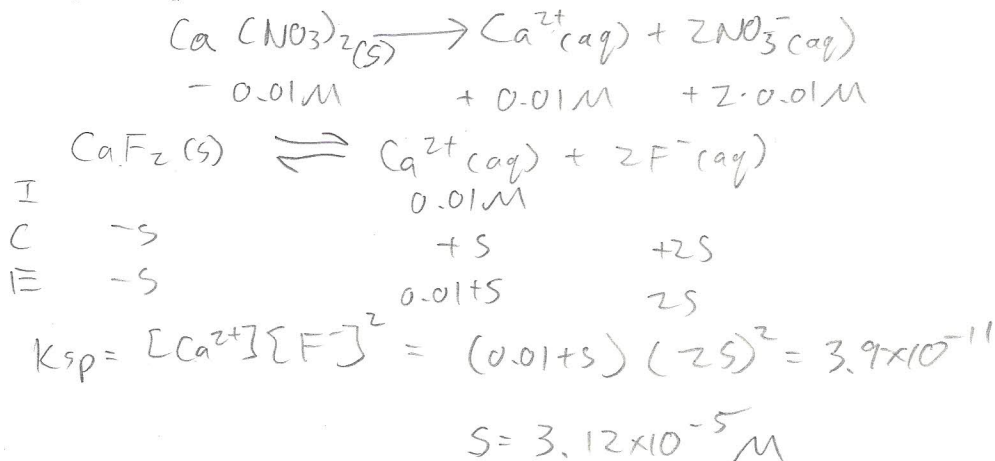 Ca(NO3)2(s) → Ca²⁺(aq) + 2NO3⁻(aq)
- 0.01M + 0.01M + 2·0.01M
CaF2(s) ⇌ Ca²⁺(aq) + 2F⁻(aq)
I 0.01M
C -s +s +2s
E -s 0.01+s 2s
Ksp = [Ca²⁺][F⁻]² = (0.01+s)(2s)² = 3.9×10⁻¹¹
s = 3.12×10⁻⁵ M